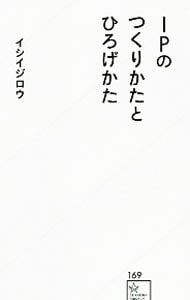 IPの
つくりかたと
ひろげかた
イシイジロウ
169